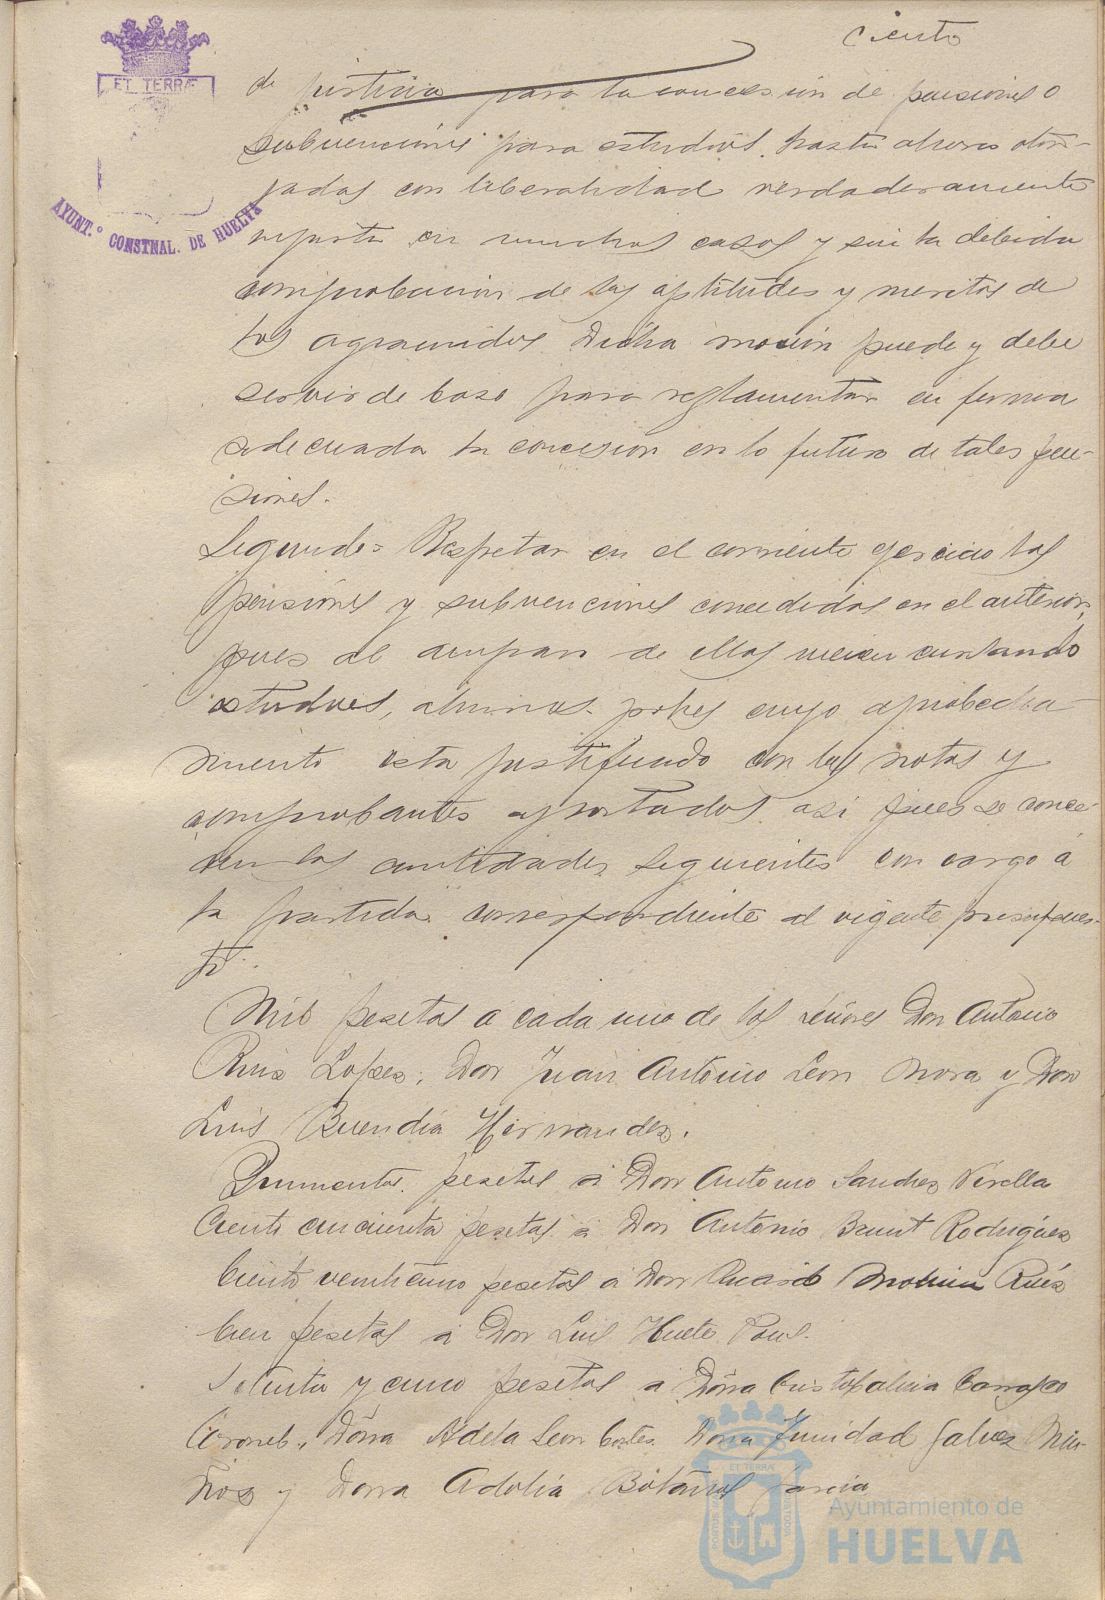 ciento
ET TERRÆ
AYUNT.º CONSTNAL. DE HUELVA
de justicia para la concesion de pensiones o
subvenciones para estudios, hasta ahora otor-
gadas con liberalidad verdaderamente
injusta en muchos casos y sin la debida
comprobacion de las aptitudes y meritos de
los agraciados. Dicha mocion puede y debe
servir de base para reglamentar en forma
adecuada la concesion en lo futuro de tales pen-
siones.
Segundo= Respetar en el corriente ejercicio las
pensiones y subvenciones concedidas en el anterior,
pues al amparo de ellas vienen cursando
estudios, alumnos pobres cuyo aprovecha-
miento esta justificado con las notas y
comprobantes aportados, asi pues se conce-
den las cantidades siguientes con cargo á
la partida correspondiente al vigente presupues-
to.
Mil pesetas a cada uno de los señores Don Antonio
Ruis Lopes, Don Juan Antonio Leon Mora y Don
Luis Buendia Hernandes.
Quinientas pesetas a Don Antonio Sanches
Ciento cincuenta pesetas a Don Antonio Brunt Rodrigues
Ciento veinticinco pesetas a Don Ricardo Molina Ruis
Cien pesetas a Don Luis Huete Pous.
Setenta y cinco pesetas a Doña Cristofalina Carrasco
Coronel, Doña Adela Leon Cortes, Doña Trinidad Galves
y Doña Adolia Botana Garcia
Ayuntamiento de
HUELVA